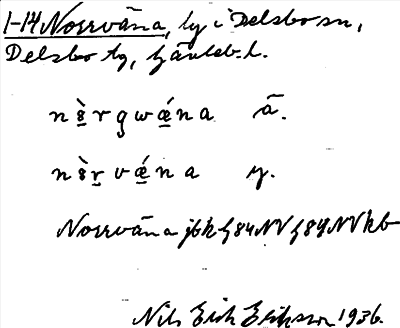 1-14 Norrväna, by i Delsbo sn,
Delsbo tg, Gävleb. l.
nè̱rgwǽ̱na ä.
nè̱rvǽ̱na y.
Norrväna jbk G84NV G89NV kb
Nils Erik Eriksson 1936.